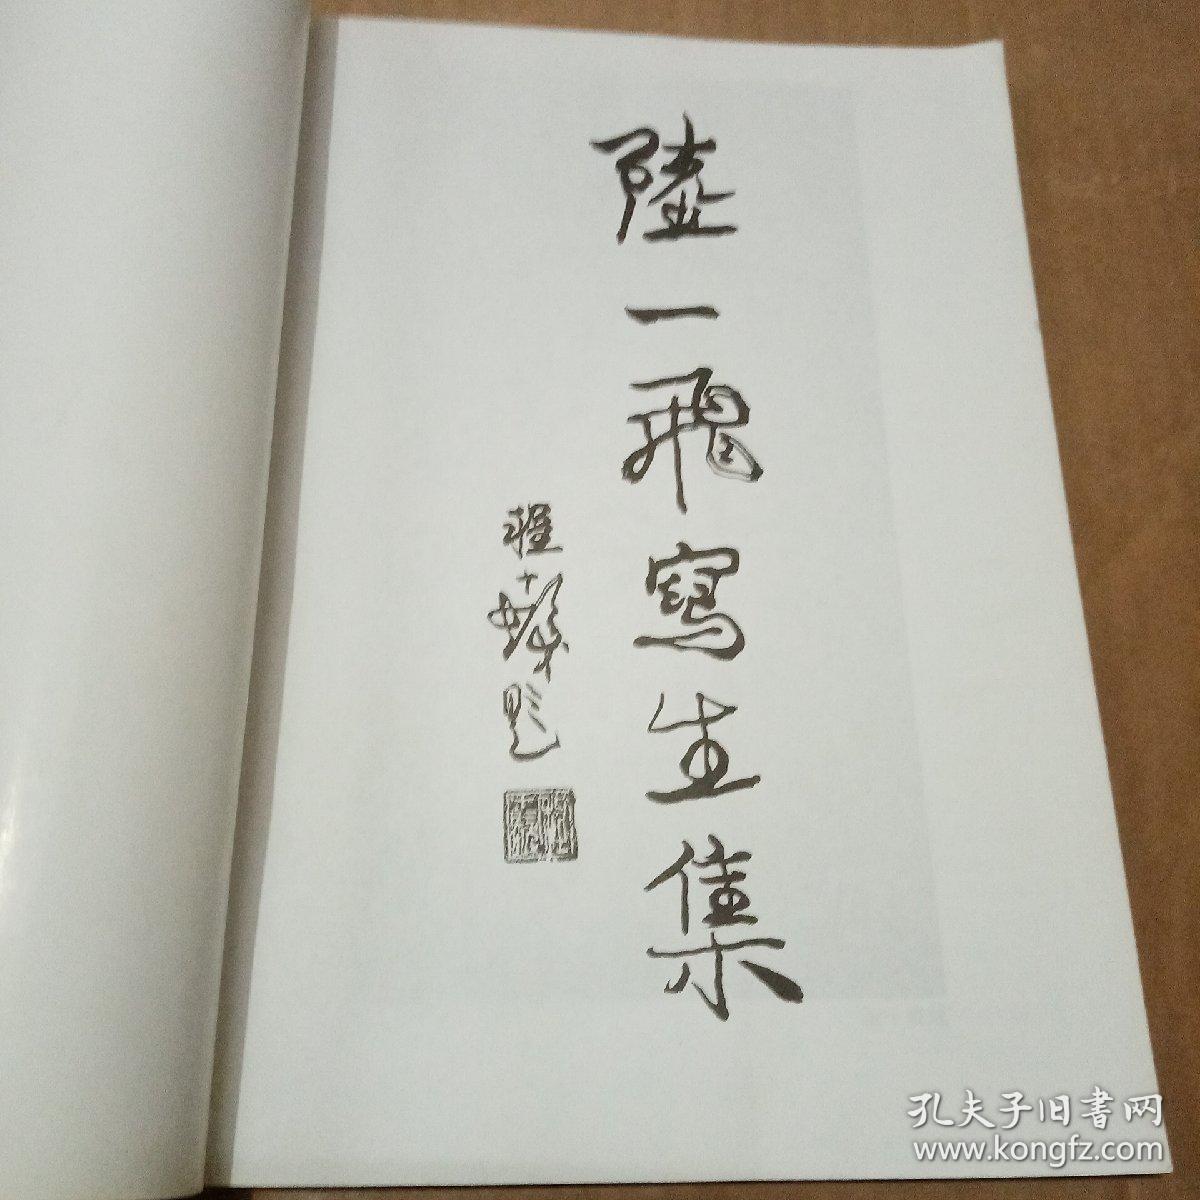 陸一飛寫生集
程十髮題
孔夫子旧書网
www.kongfz.com